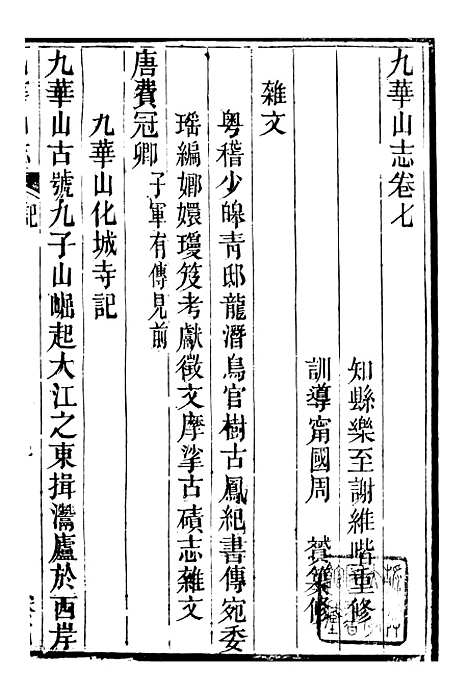 九華山志卷七
知縣樂至謝維喈重修
訓導甯國周 贇纂修
雜文
粤稽少皞青邸龍潛鳥官樹古鳳紀書傳宛委
瑶編嫏嬛瓊笈考獻徵文摩挲古磧志雜文
唐費冠卿 子軍有傳見前
九華山化城寺記
九華山古號九子山崛起大江之東揖灊廬於西岸